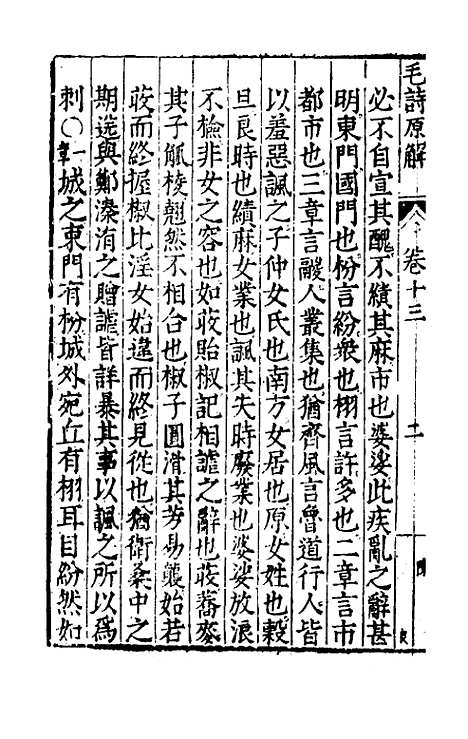 毛詩原解
卷十三
二
必不自宣其醜不績其麻市也婆娑此疾亂之辭甚
明東門國門也枌言紛衆也栩言許多也二章言市
都市也三章言鬷人叢集也猶齊風言魯道行人皆
以羞惡諷之子仲女氏也南方女居也原女姓也穀
旦良時也績麻女業也諷其失時廢業也婆娑放浪
不檢非女之容也如荍貽椒記相謔之辭也荍蕎麥
其子觚梭翹然不相合也椒子圓滑其芳易襲始若
荍而終握椒比淫女始違而終見從也猶衛桑中之
期送與鄭溱洧之贈謔皆詳暴其事以諷之所以爲
刺○一章城之東門有枌城外宛丘有栩耳目紛然如